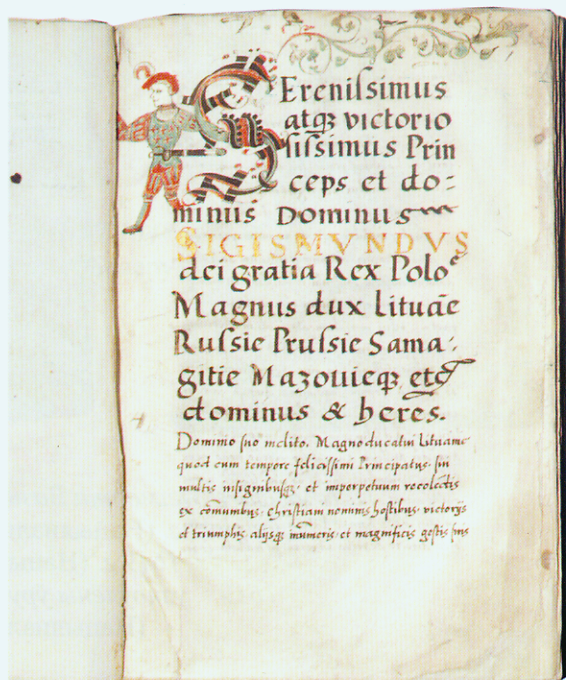 Serenissimus
atqꝫ victorio
sissimus Prin
ceps et do-
minus Dominus
SIGISMVNDVS
dei gratia Rex Poloe
Magnus dux Lituāe
Russie Prussie Sama-
gitie Mazouieqꝫ etc
dominus & heres.
Dominio suo inclito. Magno ducatui Lituanie
quod eum tempore felicissimi Principatus sui
multis insignibusqꝫ et imperpetuum recolectis
ex cōmunibus. Christiani nominis hostibus. victorijs
et triumphis. alijsqꝫ et magnificis gestis suis